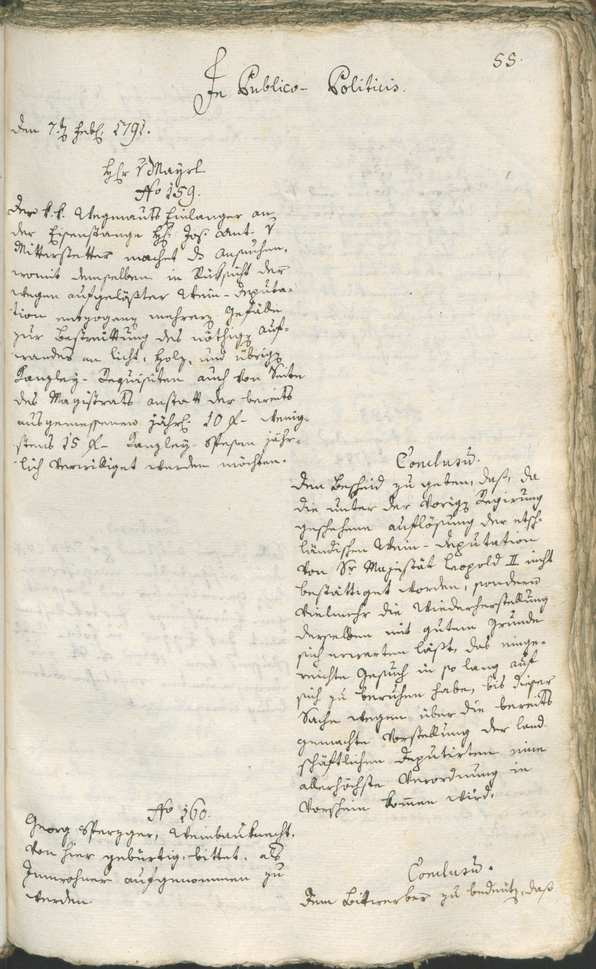 55.
In Publico- Politicis.
den 7t. Feb. 1791.
Hr. v Mayrl
No 159.
Der k. k. Wegmauts Einlanger an
der Eisenstange H. Jos. Ant. v
Mitterstetter machet das Ansuchen,
womit demselben in Rüksicht der
wegen aufgelößter Wein-Deputa-
tion entzogenen mehrern Gefälle
zur Bestreittung des nöthigen auf-
wandes an licht, Holz, und übrigen
Kanzley-Requisiten auch von Seite
des Magistrats anstatt der bereits
ausgemessenen jährl. 10 f- wenig-
stens 15 f Kanzley-Spesen jähr-
lich verwilliget werden möchten.
Conclusum.
dem Bescheid zu geben, daß, da
die unter der vorigen Regirung
geschehene auflösung der etsch-
ländischen Wein-Deputation
von Sr Majestät Leopold II nicht
bestättiget worden, sondern
vielmehr die Wiederherstellung
derselben mit gutem Grunde
sich erwarten läßt, das einge-
reichte Gesuch in so lang auf
sich zu beruhen habe, bis dieser
Sache wegen über die bereits
gemachte Vorstellung der land-
schäftlichen Deputirten eine
allerhöchste Verordnung in
Vorschein kommen wird.
No 160.
Georg, Weinbauknecht.
von hier gebürtig, bittet, als
Innwohner aufgenommen zu
werden
Conclusum.
dem Bittwerber zu bedeuten, daß